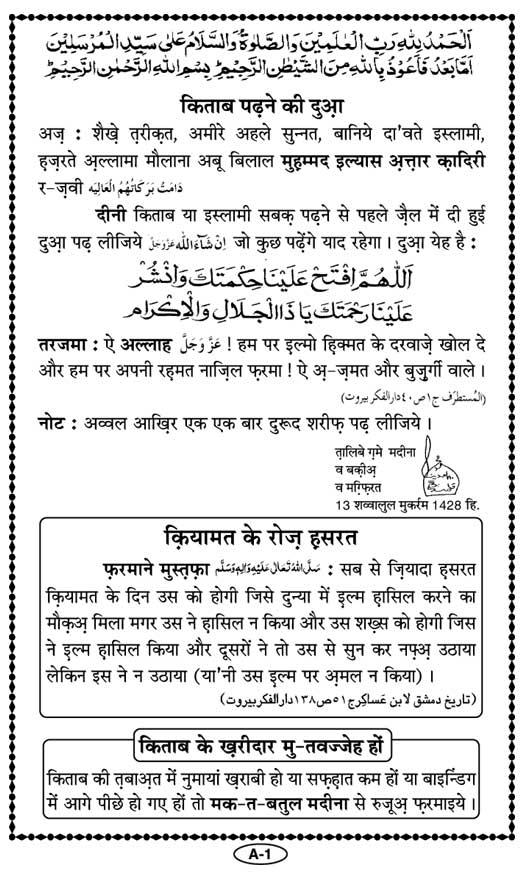 اَلْحَمْدُ لِلّٰهِ رَبِّ الْعٰلَمِيْنَ وَالصَّلٰوةُ وَالسَّلَامُ عَلٰى سَيِّدِ الْمُرْسَلِيْنَ
اَمَّا بَعْدُ فَاَعُوْذُ بِاللّٰهِ مِنَ الشَّيْطٰنِ الرَّجِيْمِ ؕ بِسْمِ اللّٰهِ الرَّحْمٰنِ الرَّحِيْمِ ؕ
किताब पढ़ने की दुआ
अज़ : शैख़े त़रीक़त, अमीरे अहले सुन्नत, बानिये दा'वते इस्लामी,
ह़ज़रते अ़ल्लामा मौलाना अबू बिलाल मुह़म्मद इल्यास अ़त़्त़ार क़ादिरी
र-ज़वी دَامَتْ بَرَكَاتُهُمُ الْعَالِيَه
दीनी किताब या इस्लामी सबक़ पढ़ने से पहले ज़ैल में दी हुई
दुआ़ पढ़ लीजिये اِنْ شَآءَ اللّٰه عَزَّوَجَلَّ जो कुछ पढ़ेंगे याद रहेगा । दुआ़ येह है :
اَللّٰهُمَّ افْتَحْ عَلَيْنَا حِكْمَتَكَ وَانْشُرْ
عَلَيْنَا رَحْمَتَكَ يَا ذَا الْجَلَالِ وَالْاِكْرَام
तरजमा : ऐ अल्लाह عَزَّ وَجَلَّ ! हम पर इल्मो ह़िक्मत के दरवाज़े खोल दे
और हम पर अपनी रह़मत नाज़िल फ़रमा ! ऐ अ़-ज़मत और बुज़ुर्गी वाले ।
(اَلْمُسْتَطْرَف ج١ ص٤٠ دارالفکر بیروت)
नोट : अव्वल आख़िर एक एक बार दुरूद शरीफ़ पढ़ लीजिये ।
त़ालिबे ग़मे मदीना
व बक़ीअ़
व मग़्फ़िरत
13 शव्वालुल मुकर्रम 1428 हि.
क़ियामत के रोज़ ह़सरत
फ़रमाने मुस्त़फ़ा صَلَّى اللّٰهُ تَعَالٰى عَلَيْهِ وَاٰلِهٖ وَسَلَّم : सब से ज़ियादा ह़सरत
क़ियामत के दिन उस को होगी जिसे दुन्या में इल्म ह़ासिल करने का
मौक़अ़ मिला मगर उस ने ह़ासिल न किया और उस शख़्स को होगी जिस
ने इल्म ह़ासिल किया और दूसरों ने तो उस से सुन कर नफ़्अ़ उठाया
लेकिन इस ने न उठाया (या'नी उस इल्म पर अ़मल न किया) ।
(تاریخ دمشق لابن عَساکِر ج٥١ ص١٣٨ دارالفکر بیروت)
किताब के ख़रीदार मु-तवज्जेह हों
किताब की त़बाअ़त में नुमायां ख़राबी हो या सफ़ह़ात कम हों या बाइन्डिंग
में आगे पीछे हो गए हों तो मक-त-बतुल मदीना से रुजूअ़ फ़रमाइये ।
A-1